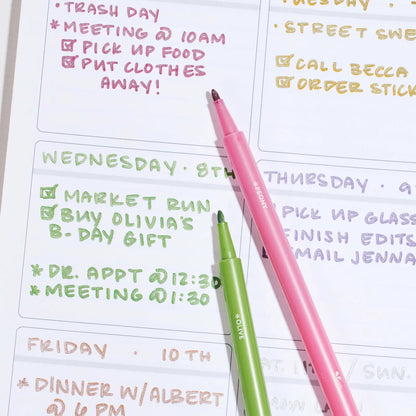 · TRASH DAY
* MEETING @ 10AM
☑ PICK UP FOOD
☑ PUT CLOTHES
AWAY!
TUESDAY · 
· STREET SWE
☑ CALL BECCA
☑ ORDER STICK
WEDNESDAY · 8TH
☑ MARKET RUN
☑ BUY OLIVIA'S
B-DAY GIFT
* DR. APPT @ 12:30
* MEETING @ 1:30
THURSDAY · 9
PICK UP GLASS
FINISH EDITS
EMAIL JENNA
FRIDAY · 10TH
* DINNER W/ALBERT
@ 6 PM
SAT. 11TH / SUN.
PEONY
OLIVE